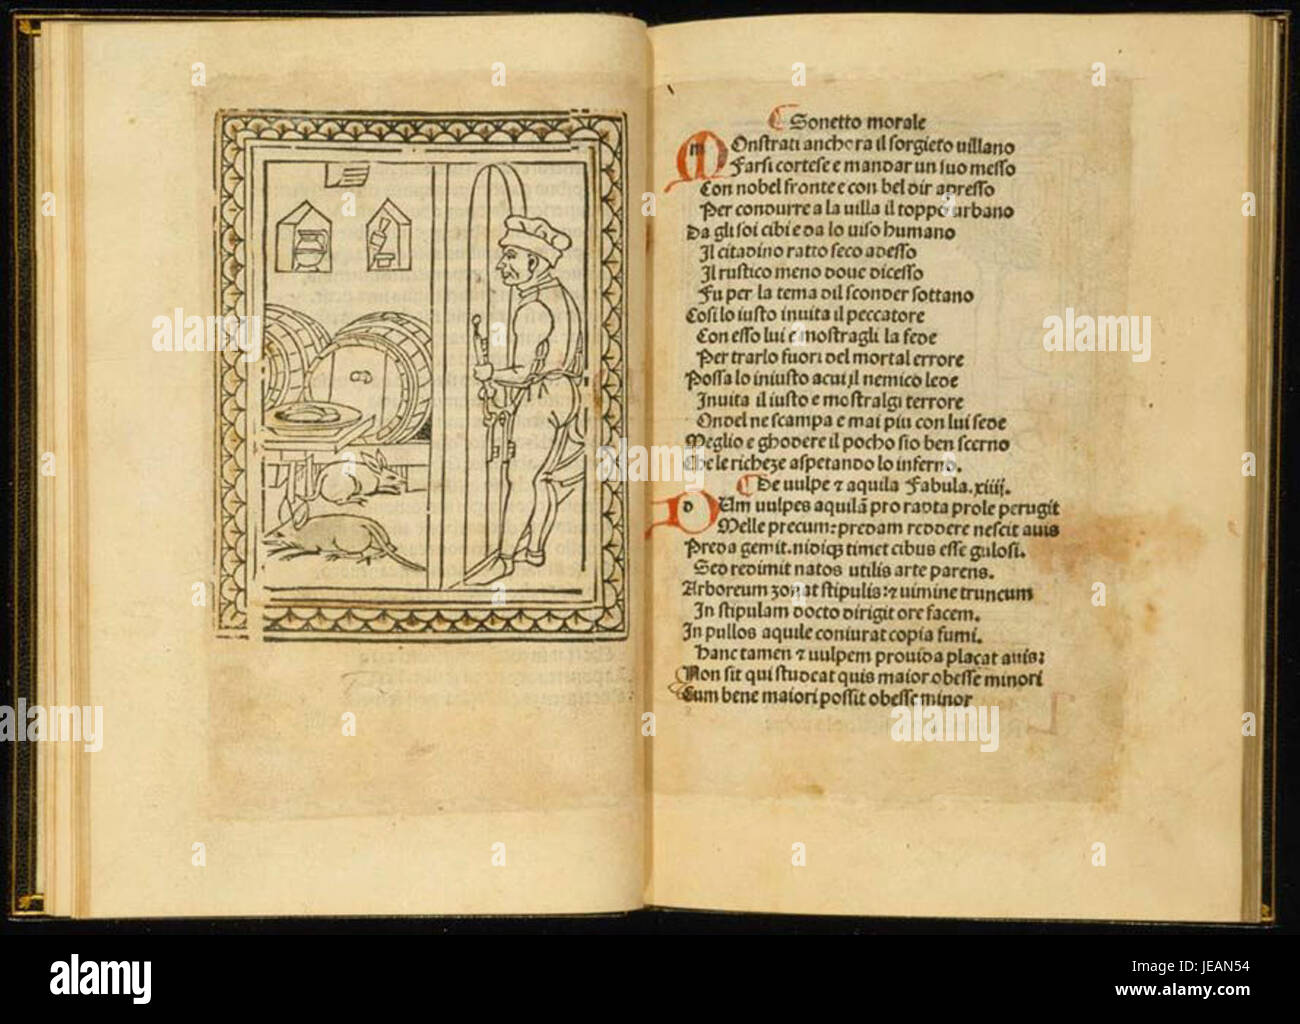 Sonetto morale
MOnstrati anchora il sorgieto uillano
Farsi cortese e mandar un suo messo
Con nobel fronte e con bel dir apresso
Per condurre a la uilla il toppo urbano
Da gli soi cibi e da lo uiso humano
Il citadino ratto seco adesso
Il rustico meno doue dicesso
Fu per la tema dil sconder sottano
Cosi lo iusto inuita il peccatore
Con esso lui e mostragli la fede
Per trarlo fuori del mortal errore
Possa lo iniusto acui il nemico lede
Inuita il iusto e mostralgi terrore
Ondel ne scampa e mai piu con lui sede
Meglio e ghodere il pocho sio ben scerno
Che le richeze aspetando lo inferno.
De uulpe ⁊ aquila Fabula.xiiij.
DUm uulpes aquilã pro rapta prole perugit
Melle precum: predam reddere nescit auis
Preda gemit. nidiqꝫ timet cibus esse gulosi.
Sed redimit natos utilis arte parens.
Arboreum zonat stipulis: ⁊ uimine truncum
In stipulam docto dirigit ore facem.
In pullos aquile coniurat copia fumi.
hanc tamen ⁊ uulpem prouida placat auis:
Non sit qui studeat quis maior obesse minori
Cum bene maiori possit obesse minor
alamy
Image ID: JEAN54
www.alamy.com